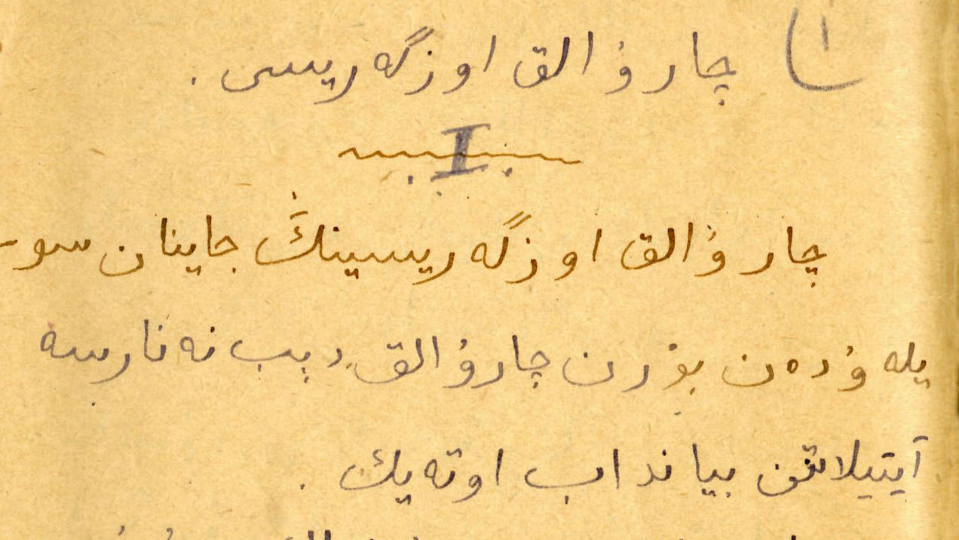 ١) چارۋالق اوزگەریسی .
I
چارۋالق اوزگەریسینڭ جاینان سوـ
یلەۋدەن بۇرن چارۋالق دیب نە نارسە
آیتیلاتن بیانداب اوتەیك .